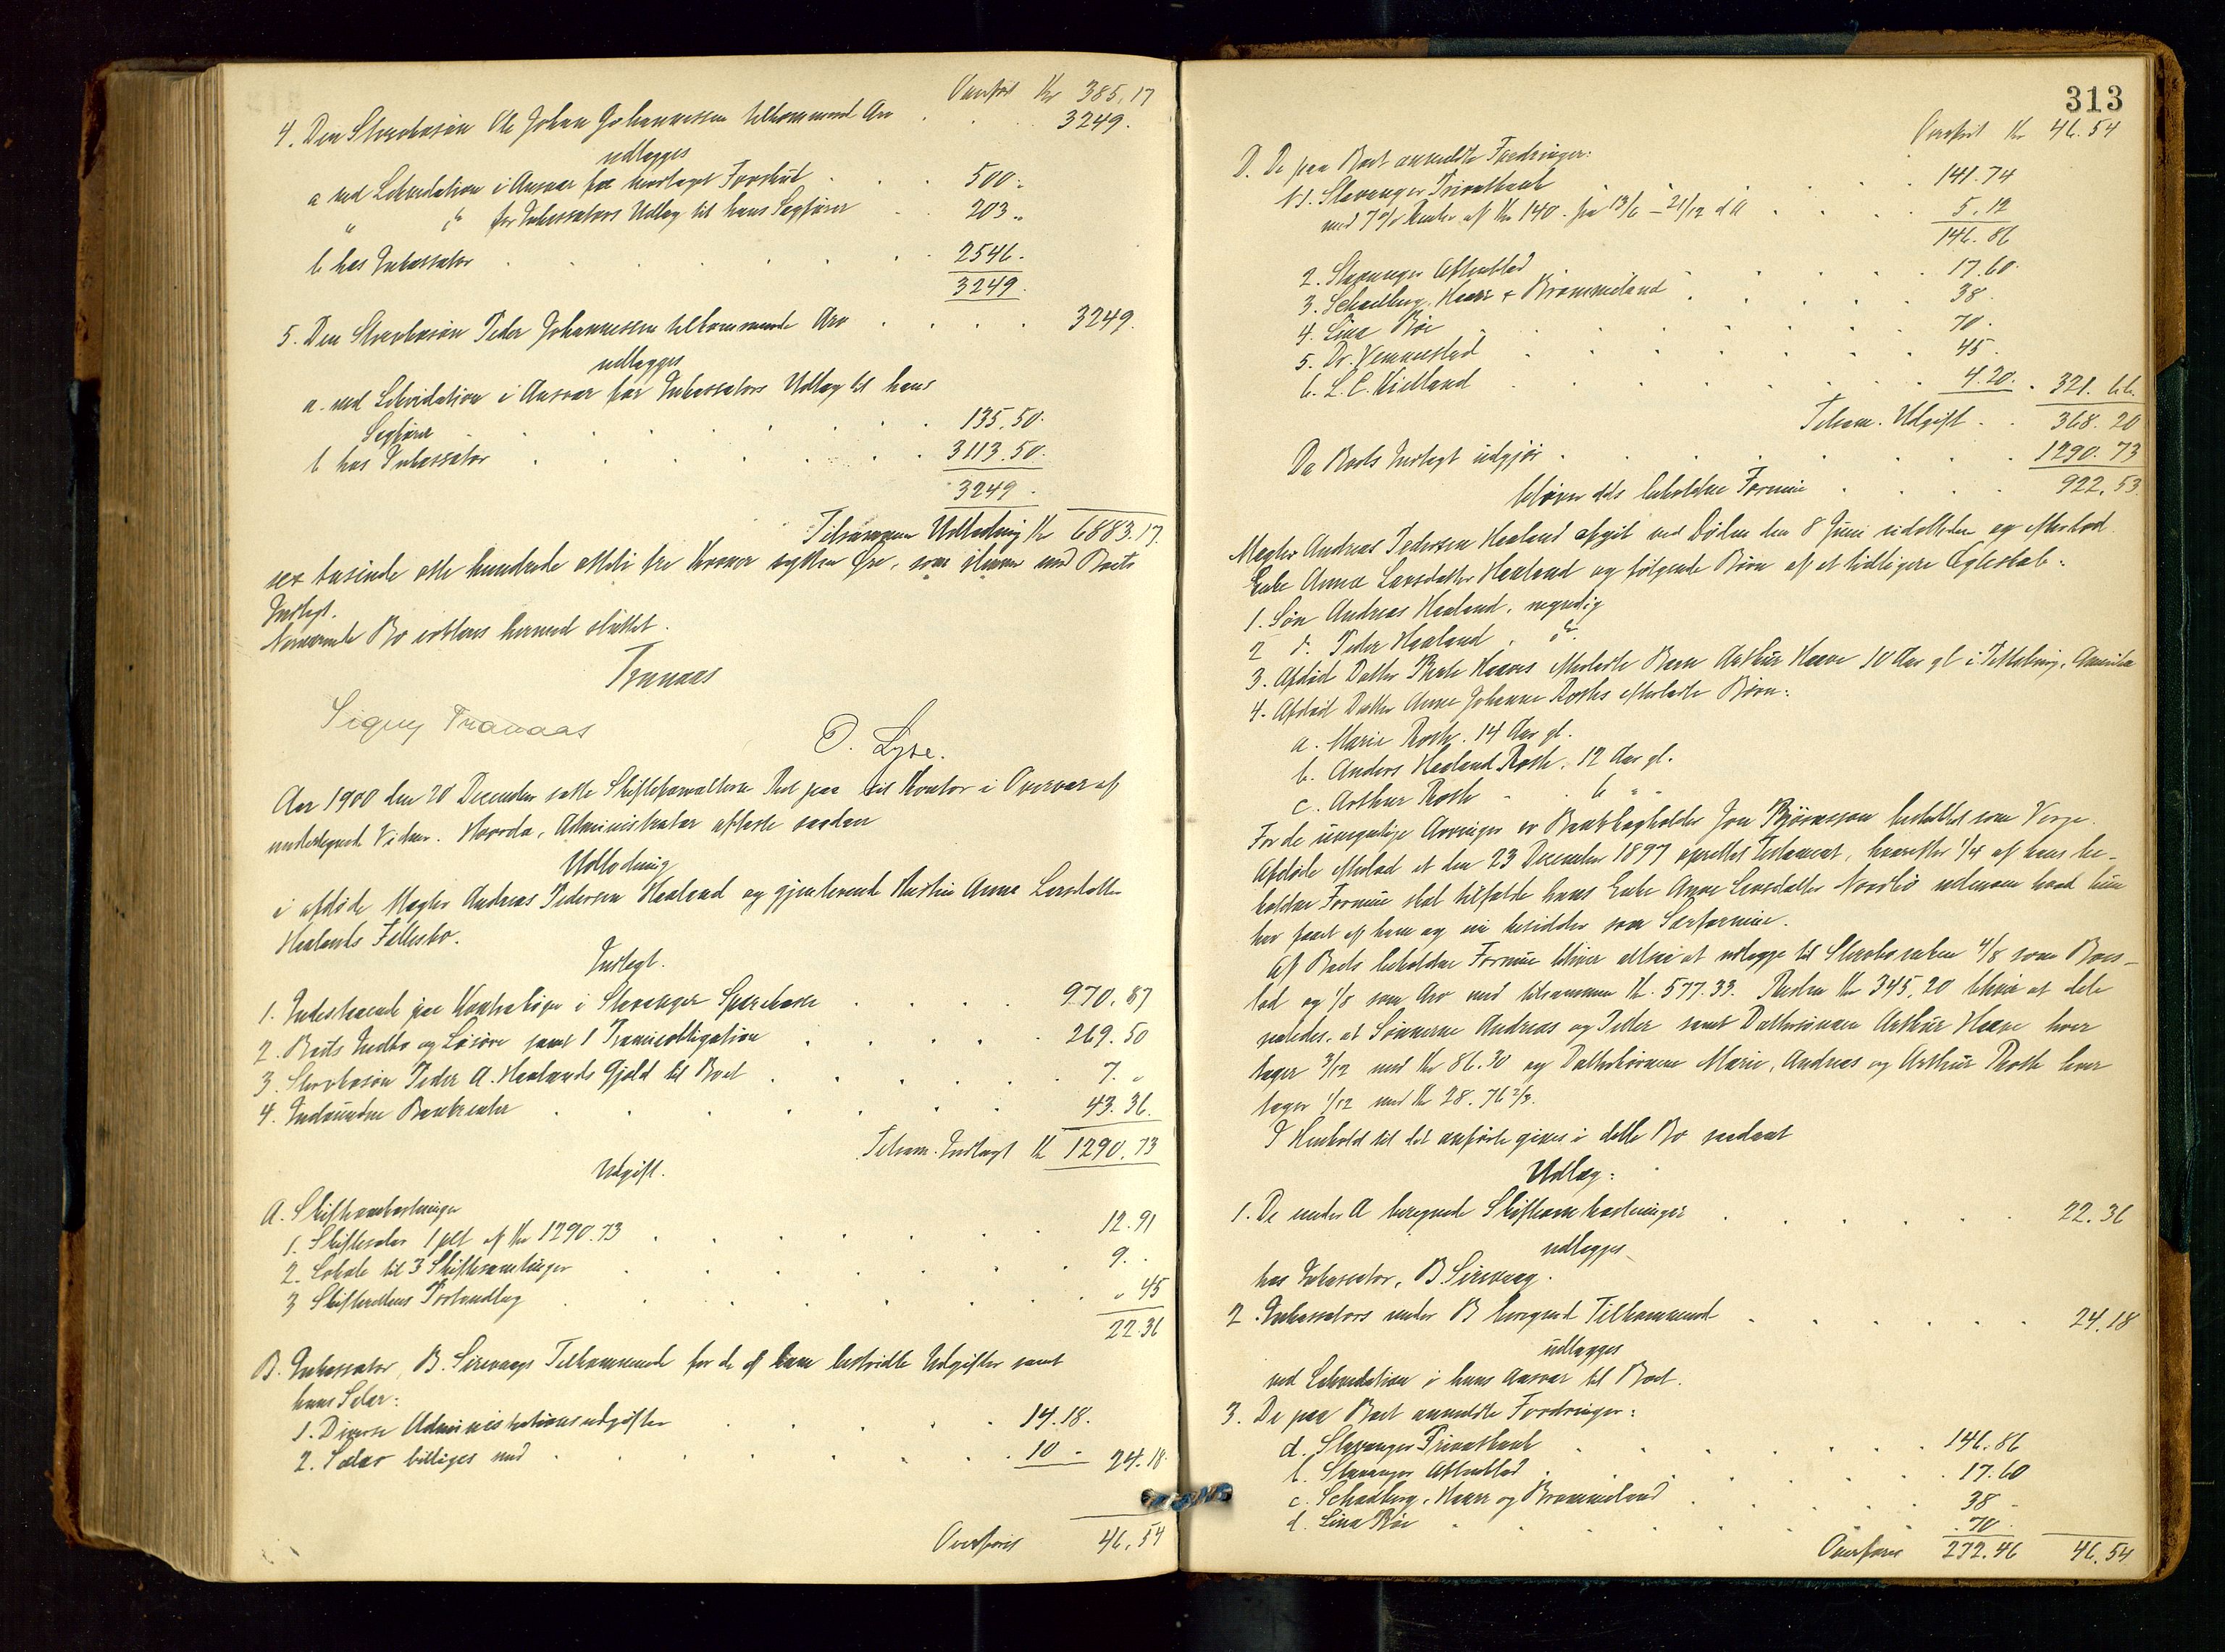 Overført Kr 385,17
4. Den Stervbosøn Ole Johan Johannessen tilkommende Arv 3249.
udlægges
a ved Likvidation i Ansvar for modtaget Forskud 500 "
" do for Inkassators Udlæg til hans Sagfører 203 "
b hos Inkassator 2546.
3249.
5. Den Stervbosøn Peder Johannessen tilkommende Arv 3249.
udlægges
a. ved Likvidation i Ansvar for Inkassators Udlæg til hans
Sagfører 135.50.
b hos Inkassator 3113.50.
3249.
Tilsammen Udlodning Kr 6883.17.
sex tusinde otte hundrede otteti tre Kroner sytten Øre, som stemmer med Boets
Indtægt.
Nærværende Bo erklæres hermed sluttet.
Tranaas
Signy Tranaas
O. Lyse.
Aar 1900 den 20 December satte Skifteforvalteren Ret paa sit Kontor i Overvær af
undertegnede Vidner. Hvorda, Administrator afleste saadan
Udlodning
i afdøde Mægler Andreas Pedersen Haaland og gjenlevende Hustru Anna Larsdatter
Haalands Fællesbo.
Indtægt.
1. Indestaaende paa Kontrabøger i Stavanger Sparekasse 970.87
2. Boets Indbo og Løsøre samt 1 Præmieobligation 269.50
3. Stervbosøn Peder A. Haalands Gjæld til Boet 7. "
4. Indvundne Bankrenter 43.36.
Tilsam. Indtægt Kr 1290.73
Udgift.
A. Skifteomkostninger
1. Skiftesalær 1 pct af Kr 1290.73 12.91
2. Lokale til 3 Skiftesamlinger 9. "
3 Skifterettens Portoudlæg " 45
22.36
B. Inkassator, B. Sirevaags Tilkommende for de af ham bestridte Udgifter samt
hans Salær:
1. Diverse Administrationsudgifter 14.18.
2. Salær billiges med 10 - 24.18.
Overføres 46.54
313
Overført Kr 46.54
D. De paa Boet anmeldte Fordringer:
1. Stavanger Privatbank 141.74
med 7% Rente af Kr 140. fra 13/6 - 21/12 d A 5.12
146.86
2. Stavanger Aftenblad 17.60.
3. Schadberg, Haar & Brommeland 38.
4. Lina Bøe 70.
5. Dr. Vennestad 45.
6. L. C. Kielland 4.20. 321.66.
Tilsam. Udgift 368.20
Da Boets Indtægt udgjør 1290.73
bliver dets beholdne Formue 922.53.
Mægler Andreas Pedersen Haaland afgik ved Døden den 8 Juni sidstleden og efterlod
Enke Anna Larsdatter Haaland og følgende Børn af et tidligere Ægteskab:
1. Søn Andreas Haaland, myndig
2 d. Peder Haaland, do
3. Afdød Datter Berte Haaves efterladte Barn Arthur Haave 10 Aar gl i Pittsburg, Amerika
4. Afdød Datter Anne Johanne Roths efterladte Børn:
a. Marie Roth. 14 Aar gl.
b. Anders Haaland Roth. 12 Aar gl.
c. Arthur Roth - 6 " "
For de umyndige Arvinger er Bankbogholder Jon Bjørnsson beskikket som Verge.
Afdøde efterlod et den 23 December 1897 oprettet Testament, hvorefter 1/4 af hans be-
holdne Formue skal tilfalde hans Enke Anna Larsdatter Nordbø udenom hvad hun
har faaet af ham og nu besidder som Særformue.
Af Boets beholdne Formue bliver altsaa at udlægge til Stervboenken 4/8 som Boes-
lod og 1/8 som Arv med tilsammen Kr. 577.33. Resten Kr 345,20 bliver at dele
saaledes, at Sønnerne Andreas og Peder samt Dattersønnen Arthur Haave hver
tager 3/12 med Kr 86.30 og Datterbørnene Marie, Andreas og Arthur Roth hver
tager 1/12 med Kr 28.76 2/3.
I Henhold til det anførte gives i dette Bo saadant
Udlæg:
1. De under A beregnede Skifteomkostninger 22.36
udlægges
hos Inkassator, B. Sirevaag.
2. Inkassators under B beregnede Tilkommende 24.18
udlægges
ved Likvidation i hans Ansvar til Boet.
3. De paa Boet anmeldte Fordringer:
a. Stavanger Privatbank 146.86
b. Stavanger Aftenblad 17.60
c. Schadberg, Haar og Brommeland 38 -
d. Lina Bøe 70.
Overføres 272.46 46.54